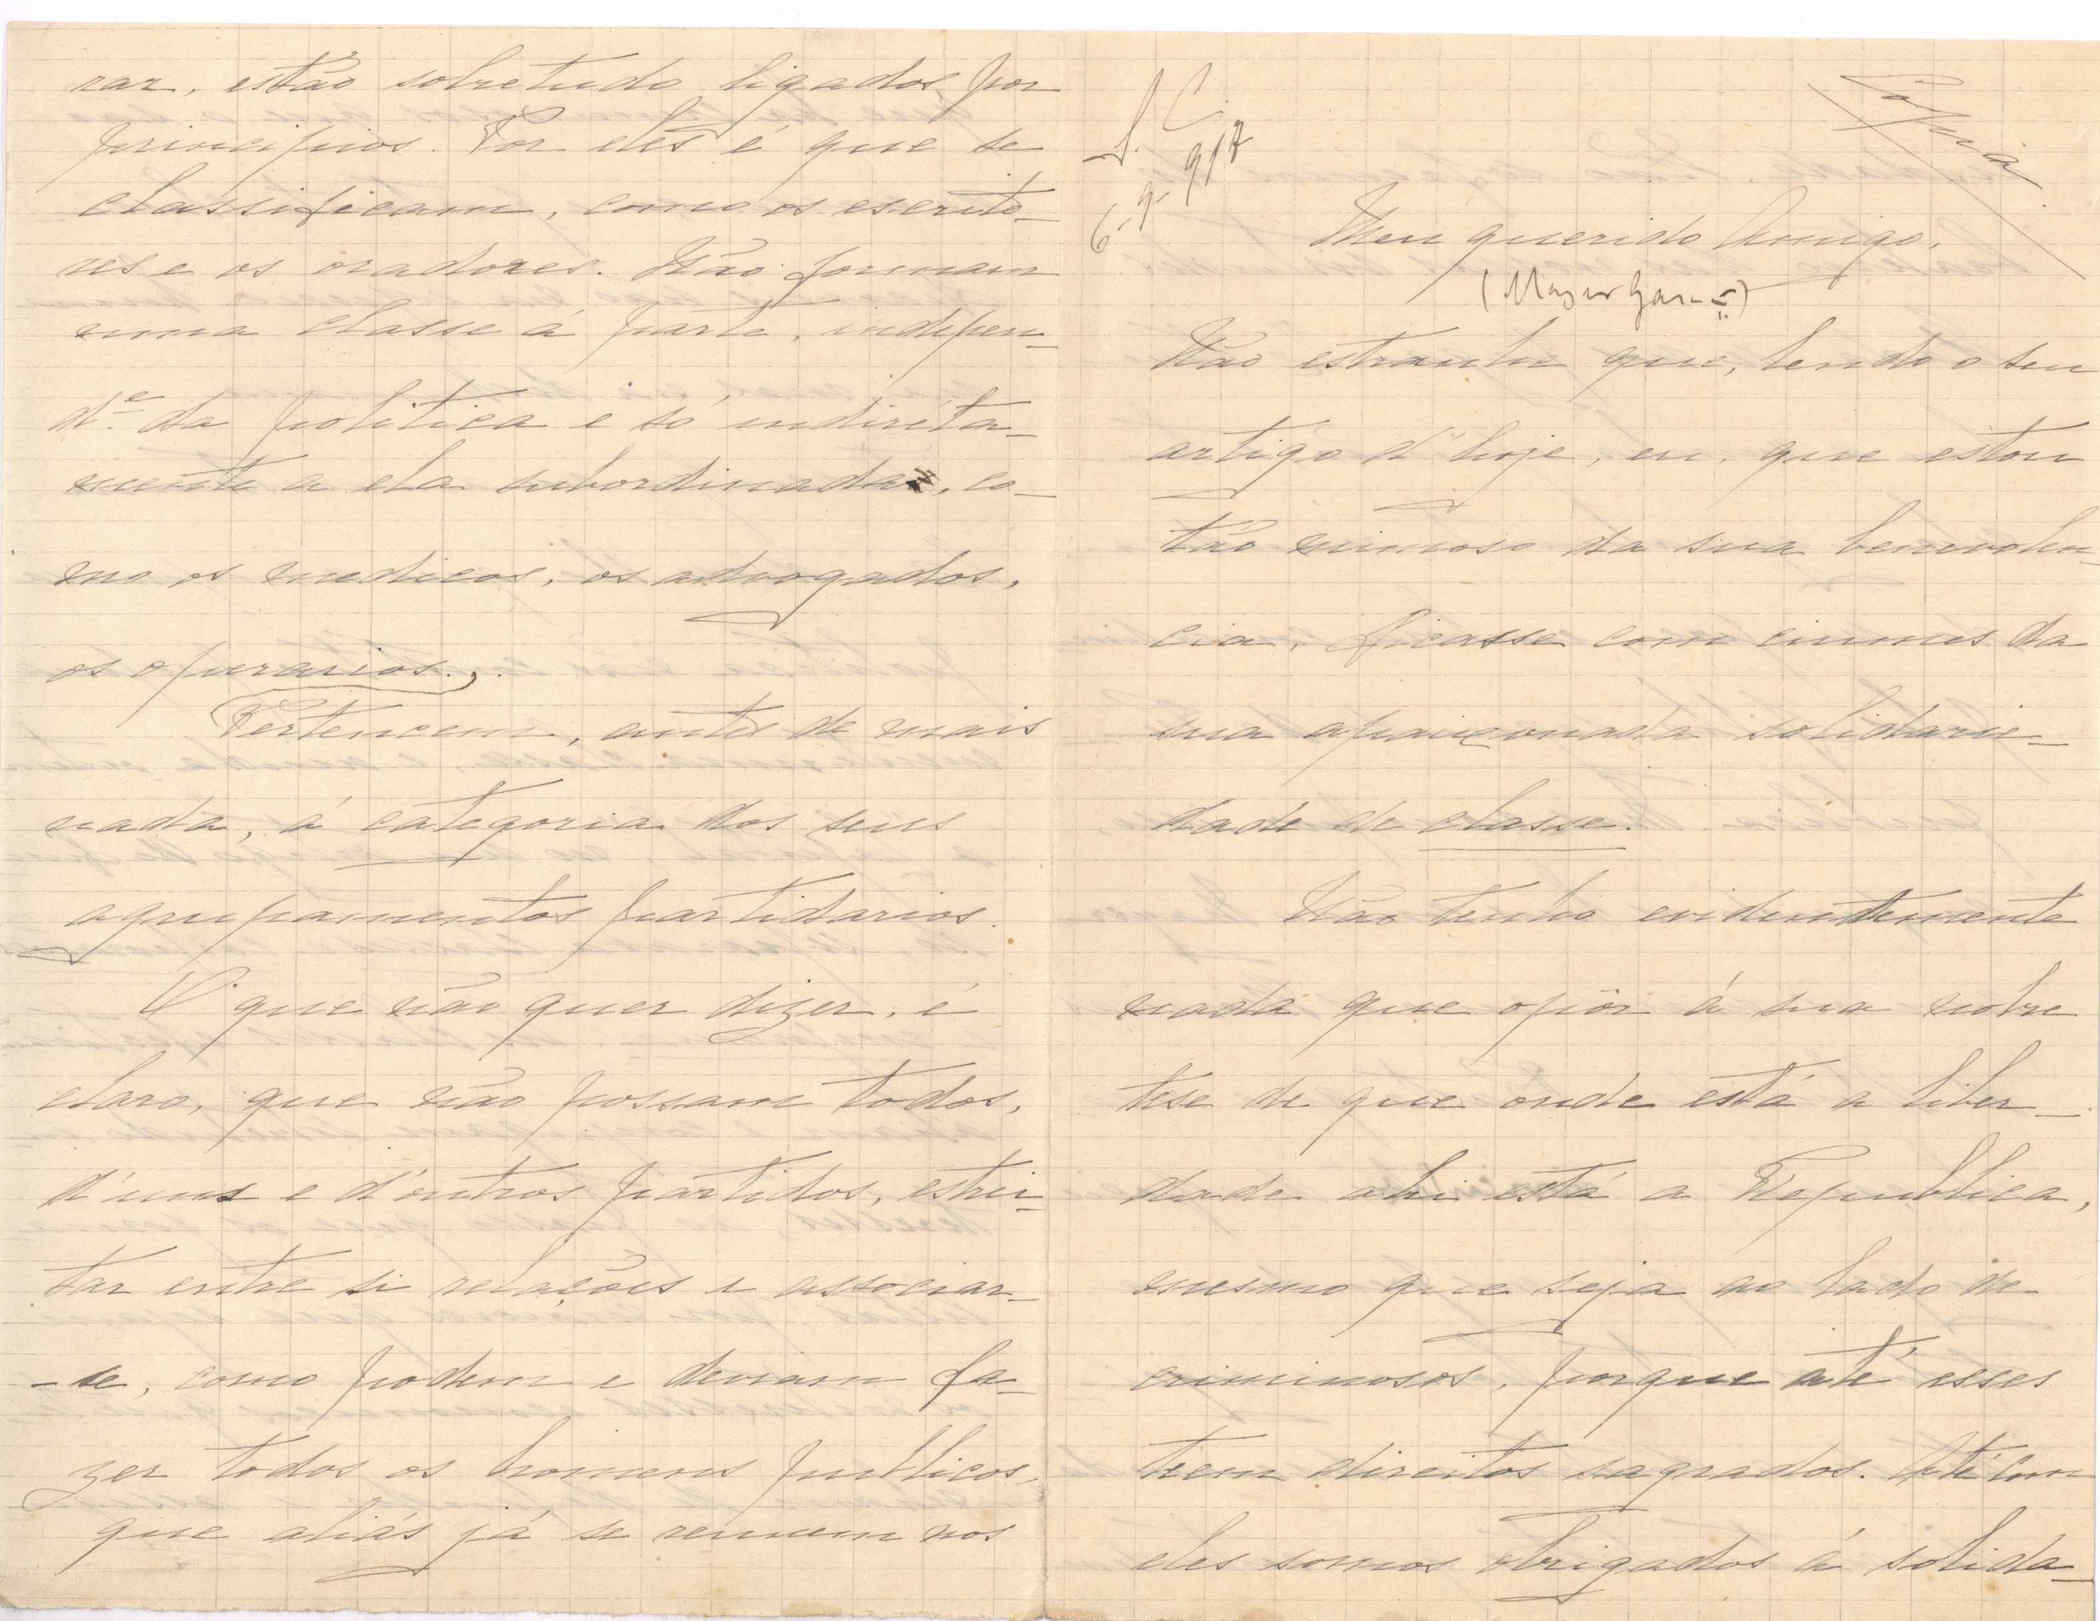 rar, estão sobretudo ligados por
principios. Por eles é que se
classificam, como os escrito-
res e os oradores. Não formam
uma classe á parte, indepen-
d.e da politica e só indiréta-
mente a ela subordinada, co-
mo os medicos, os advogados,
os operarios.
Pertencem, antes de mais
nada, á categoria dos seus
agrupamentos partidarios.
O que não quer dizer, é
claro, que não possam todos,
d'uns e d'outros partidos, estrei-
tar entre si relações e associar-
-se, como podem e deviam fa-
zer todos os homens publicos,
que aliás já se reunem nos
S. C.
6-9-917
Cópia
Meu querido Amigo,
(Mayer Garção)
Não estranhe que, lendo o seu
artigo d'hoje, eu, que estou
tão mimoso da sua benevolen-
cia, ficasse com ciumes da
sua apaixonada solidarie-
dade de classe.
Não tenho evidentemente
nada que opôr á sua nobre
tése de que onde está a liber-
dade ahi está a Republica,
mesmo que seja ao lado de
criminosos, porque até esses
teem direitos sagrados. Até com
eles somos obrigados á solida-